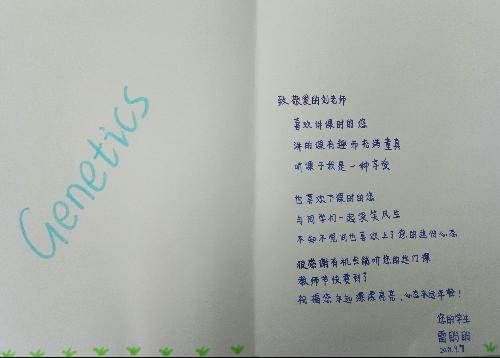 Genetics
致 敬爱的刘老师
喜欢讲课时的您
讲的课有趣而充满童真
听课于我是一种享受
也喜欢下课时的您
与同学们一起谈笑风生
不知不觉间也喜欢上了您的这份心态
很感谢有机会能听您的这门课
教师节快要到了
祝福您永远漂漂亮亮，心态永远年轻！
您的学生